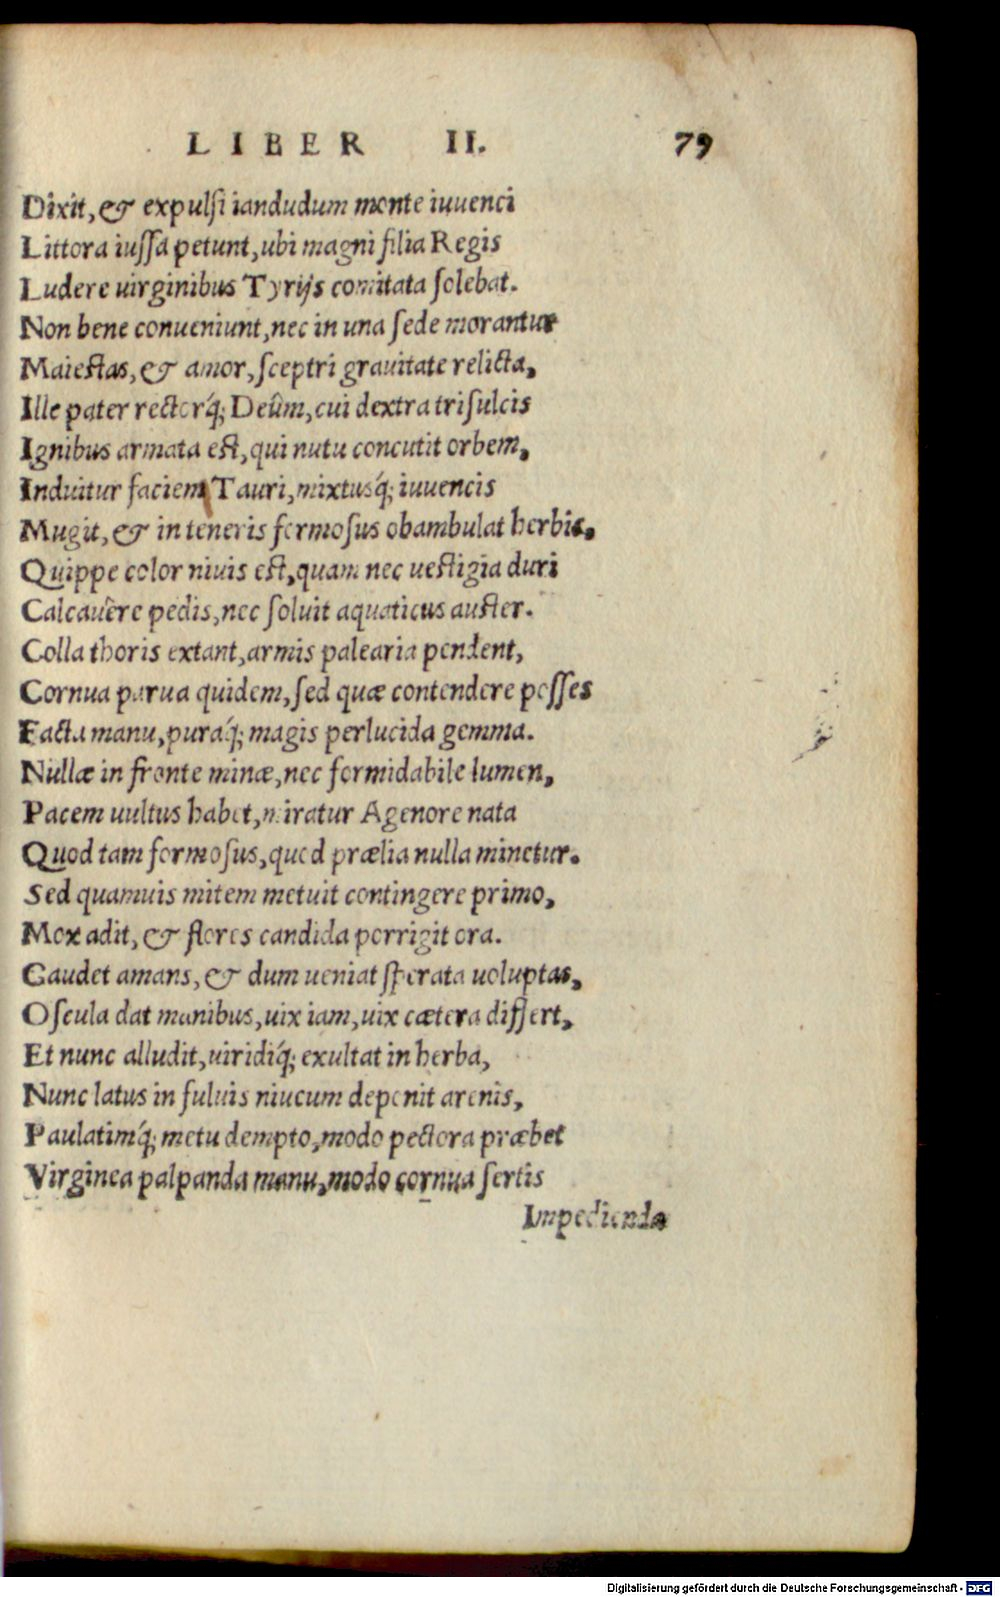 LIBER II. 79
Dixit, & expulsi iandudum monte iuuenci
Littora iussa petunt, ubi magni filia Regis
Ludere uirginibus Tyrijs comitata solebat.
Non bene conueniunt, nec in una sede morantur
Maiestas, & amor, sceptri grauitate relicta,
Ille pater rectorq́; Deûm, cui dextra trisulcis
Ignibus armata est, qui nutu concutit orbem,
Induitur faciem Tauri, mixtusq́; iuuencis
Mugit, & in teneris formosus obambulat herbis.
Quippe color niuis est, quam nec uestigia duri
Calcauêre pedis, nec soluit aquaticus auster.
Colla thoris extant, armis palearia pendent,
Cornua parua quidem, sed quæ contendere posses
Facta manu, puraq́; magis perlucida gemma.
Nullæ in fronte minæ, nec formidabile lumen,
Pacem uultus habet, miratur Agenore nata
Quod tam formosus, quod prælia nulla minetur.
Sed quamuis mitem metuit contingere primo,
Mox adit, & flores candida porrigit ora.
Gaudet amans, & dum ueniat sperata uoluptas,
Oscula dat manibus, uix iam, uix cætera differt,
Et nunc alludit, uiridiq́; exultat in herba,
Nunc latus in fuluis niueum deponit arenis,
Paulatimq́; metu dempto, modo pectora præbet
Virginea palpanda manu, modo cornua sertis
Impedienda
Digitalisierung gefördert durch die Deutsche Forschungsgemeinschaft - DFG